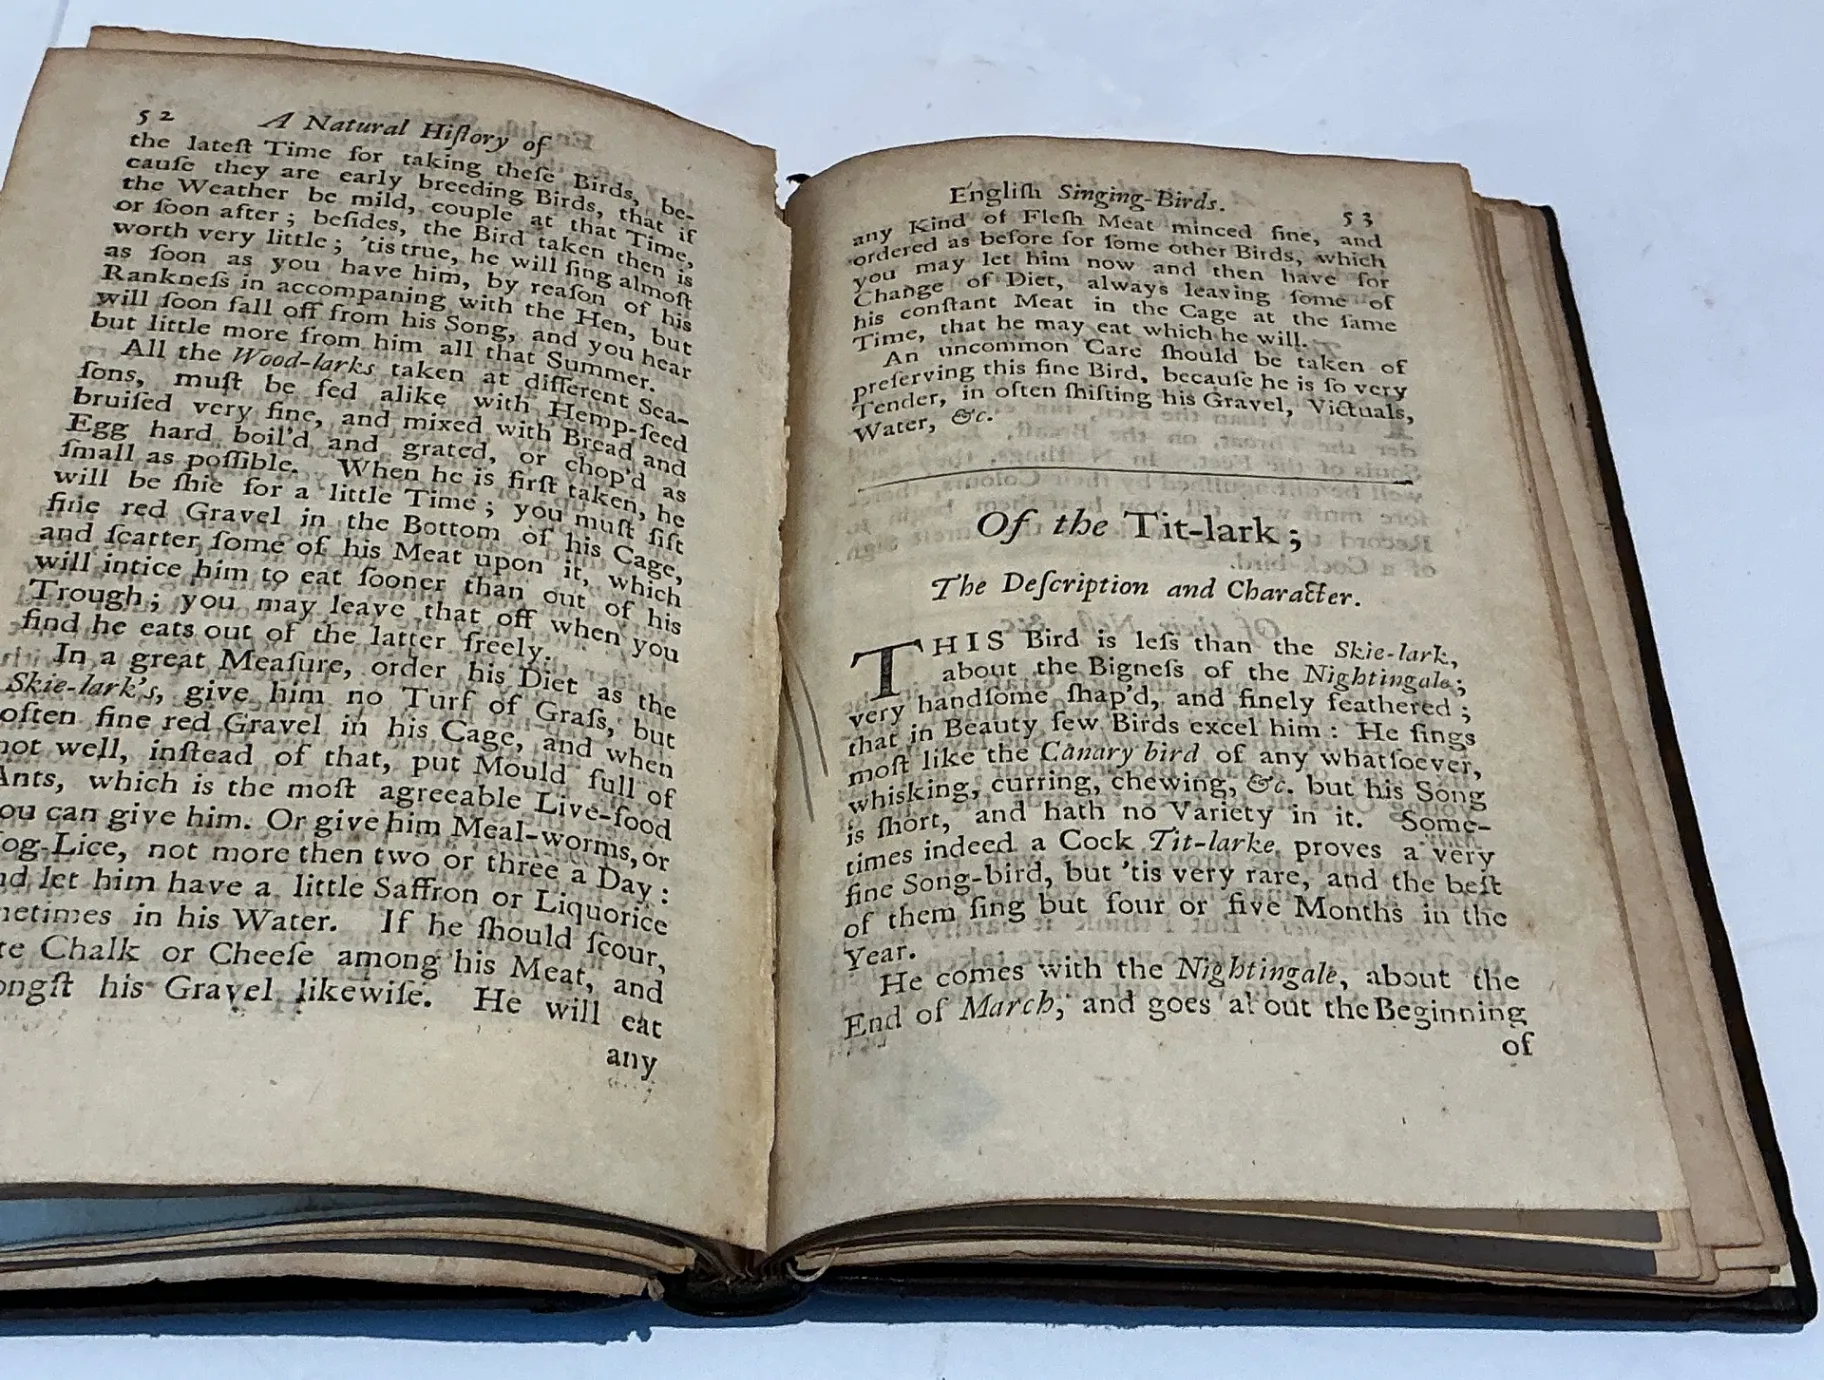 52 A Natural Hiſtory of
the lateſt Time for taking theſe Birds, be-
cauſe they are early breeding Birds, that if
the Weather be mild, couple at that Time,
or ſoon after; beſides, the Bird taken then is
worth very little; 'tis true, he will ſing almoſt
as ſoon as you have him, by reaſon of his
Rankneſs in accompaning with the Hen, but
will ſoon fall off from his Song, and you hear
but little more from him all that Summer.
All the Wood-larks taken at different Sea-
ſons, muſt be fed alike with Hemp-ſeed
bruiſed very fine, and mixed with Bread and
Egg hard boil'd and grated, or chop'd as
ſmall as poſſible. When he is firſt taken, he
will be ſhie for a little Time; you muſt ſift
fine red Gravel in the Bottom of his Cage,
and ſcatter ſome of his Meat upon it, which
will intice him to eat ſooner than out of his
Trough; you may leave that off when you
find he eats out of the latter freely.
In a great Meaſure, order his Diet as the
Skie-lark's, give him no Turf of Graſs, but
often fine red Gravel in his Cage, and when
not well, inſtead of that, put Mould full of
Ants, which is the moſt agreeable Live-food
you can give him. Or give him Meal-worms, or
og-Lice, not more then two or three a Day:
nd let him have a little Saffron or Liquorice
metimes in his Water. If he ſhould ſcour,
te Chalk or Cheeſe among his Meat, and
ongſt his Gravel likewiſe. He will eat
any
Engliſh Singing-Birds. 53
any Kind of Fleſh Meat minced fine, and
ordered as before for ſome other Birds, which
you may let him now and then have for
Change of Diet, always leaving ſome of
his conſtant Meat in the Cage at the ſame
Time, that he may eat which he will.
An uncommon Care ſhould be taken of
preſerving this fine Bird, becauſe he is ſo very
Tender, in often ſhifting his Gravel, Victuals,
Water, &c.
Of the Tit-lark;
The Deſcription and Character.
THIS Bird is leſs than the Skie-lark,
about the Bigneſs of the Nightingale;
very handſome ſhap'd, and finely feathered;
that in Beauty few Birds excel him: He ſings
moſt like the Canary bird of any whatſoever,
whisking, curring, chewing, &c. but his Song
is ſhort, and hath no Variety in it. Some-
times indeed a Cock Tit-larke proves a very
fine Song-bird, but 'tis very rare, and the beſt
of them ſing but four or five Months in the
Year.
He comes with the Nightingale, about the
End of March, and goes about the Beginning
of